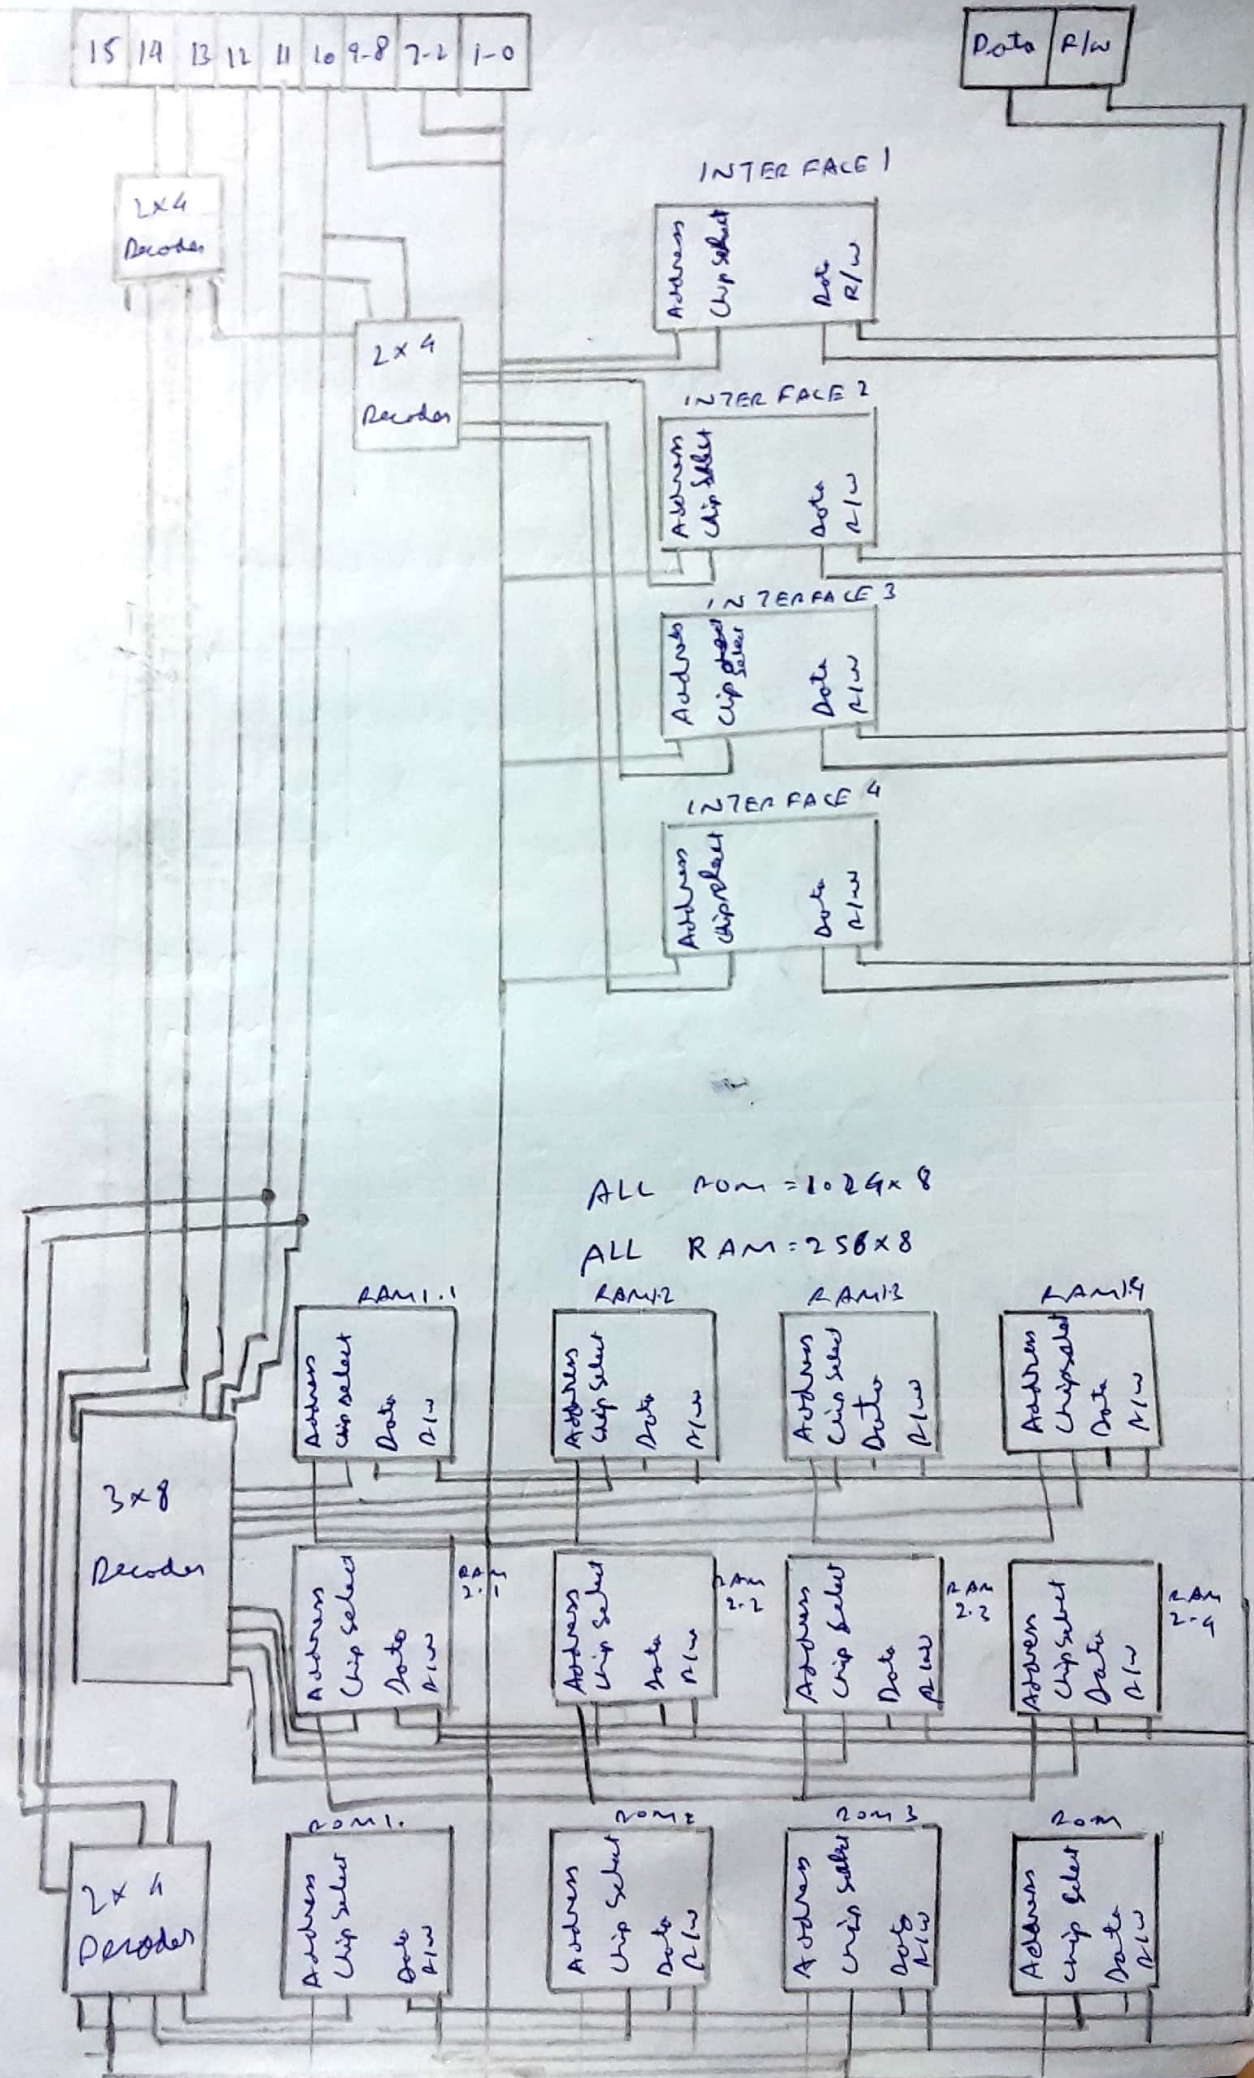 15 14 13 12 11 10 9-8 7-2 1-0
Data R/W
2x4
Decoder
INTERFACE 1
Address
Chip Select
Data
R/W
2x4
Decoder
INTERFACE 2
Address
Chip Select
Data
R/W
INTERFACE 3
Address
Chip Select
Data
R/W
INTERFACE 4
Address
Chip select
Data
R/W
ALL ROM = 1024x8
ALL RAM = 256x8
RAM1.1
Address
Chip select
Data
R/W
RAM1.2
Address
Chip Select
Data
R/W
RAM1.3
Address
Chip Select
Data
R/W
RAM1.4
Address
Chip select
Data
R/W
3x8
Decoder
RAM
2.1
Address
Chip Select
Data
R/W
RAM
2.2
Address
Chip Select
Data
R/W
RAM
2.3
Address
Chip Select
Data
R/W
RAM
2.4
Address
Chip Select
Data
R/W
2x4
Decoder
ROM1.
Address
Chip Select
Data
R/W
ROM2
Address
Chip Select
Data
R/W
ROM3
Address
Chip Select
Data
R/W
ROM
Address
Chip Select
Data
R/W